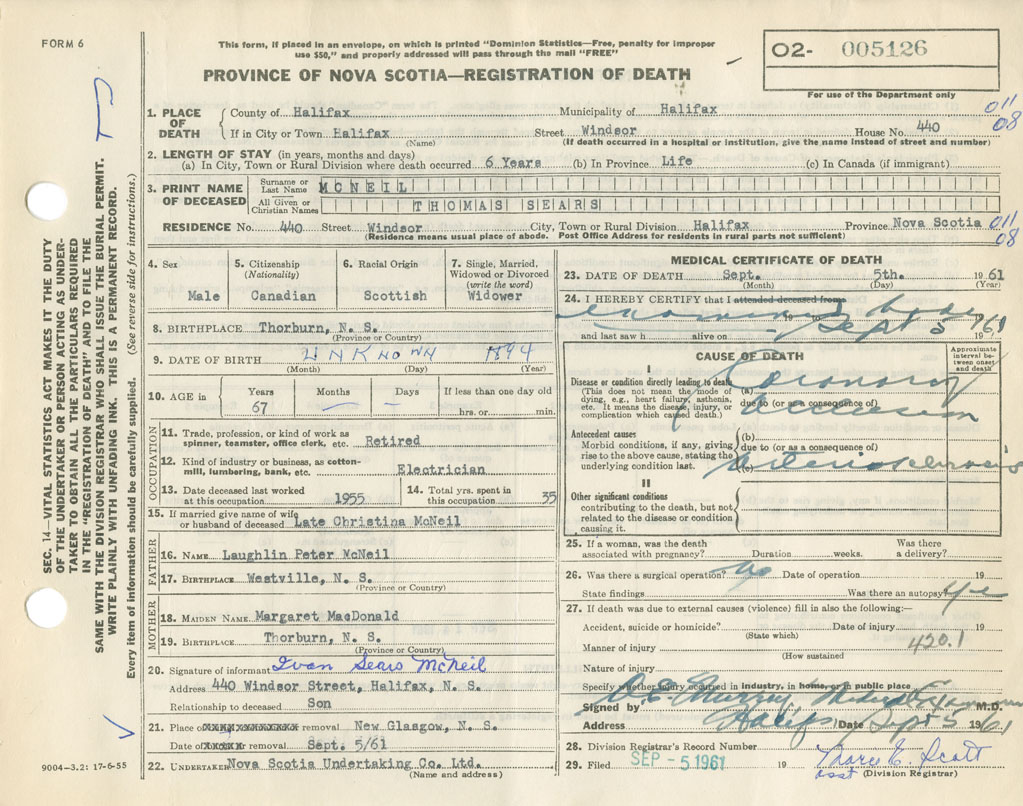 FORM 6
This form, if placed in an envelope, on which is printed "Dominion Statistics—Free, penalty for improper
use $50," and properly addressed will pass through the mail "FREE"
PROVINCE OF NOVA SCOTIA—REGISTRATION OF DEATH
O2- 005126
For use of the Department only
1. PLACE OF DEATH
County of Halifax Municipality of Halifax
011
08
If in City or Town Halifax Street Windsor House No. 440
(Name) (If death occurred in a hospital or institution, give the name instead of street and number)
2. LENGTH OF STAY (in years, months and days)
(a) In City, Town or Rural Division where death occurred 6 Years (b) In Province Life (c) In Canada (if immigrant)
3. PRINT NAME OF DECEASED
Surname or Last Name MCNEIL
All Given or Christian Names THOMAS SEARS
RESIDENCE No. 440 Street Windsor City, Town or Rural Division Halifax Province Nova Scotia
011
08
(Residence means usual place of abode. Post Office Address for residents in rural parts not sufficient)
4. Sex
Male
5. Citizenship
(Nationality)
Canadian
6. Racial Origin
Scottish
7. Single, Married,
Widowed or Divorced
(write the word)
Widower
8. BIRTHPLACE Thorburn, N. S.
(Province or Country)
9. DATE OF BIRTH UNKNOWN 1894
(Month) (Day) (Year)
10. AGE in
Years Months Days If less than one day old
67 hrs. or min.
OCCUPATION
11. Trade, profession, or kind of work as
spinner, teamster, office clerk, etc. Retired
12. Kind of industry or business, as cotton-
mill, lumbering, bank, etc. Electrician
13. Date deceased last worked
at this occupation 1955
14. Total yrs. spent in
this occupation 35
15. If married give name of wife
or husband of deceased Late Christina McNeil
FATHER
16. NAME Laughlin Peter McNeil
17. BIRTHPLACE Westville, N. S.
(Province or Country)
MOTHER
18. MAIDEN NAME Margaret MacDonald
19. BIRTHPLACE Thorburn, N. S.
(Province or Country)
20. Signature of informant Ivan Sears McNeil
Address 440 Windsor Street, Halifax, N. S.
Relationship to deceased Son
21. Place of removal New Glasgow, N. S.
Date of or removal Sept. 5/61
22. UNDERTAKER Nova Scotia Undertaking Co. Ltd.
(Name and address)
MEDICAL CERTIFICATE OF DEATH
23. DATE OF DEATH Sept. 5th. 1961
(Month) (Day) (Year)
24. I HEREBY CERTIFY that I attended deceased from
examined body
to Sept 5 1961
and last saw h alive on 19
CAUSE OF DEATH
Approximate
interval be-
tween onset
and death
I
Disease or condition directly leading to death
(This does not mean the mode of
dying, e.g., heart failure, asthenia,
etc. It means the disease, injury, or
complication which caused death.)
(a) Coronary
due to (or as a consequence of)
occlusion
Antecedent causes
Morbid conditions, if any, giving
rise to the above cause, stating the
underlying condition last.
(b)
due to (or as a consequence of)
(c) Arteriosclerosis
II
Other significant conditions
contributing to the death, but not
related to the disease or condition
causing it.
25. If a woman, was the death
associated with pregnancy? Duration weeks. Was there
a delivery?
26. Was there a surgical operation? No Date of operation 19
State findings Was there an autopsy? Yes
27. If death was due to external causes (violence) fill in also the following:—
Accident, suicide or homicide? Date of injury 19
(State which)
Manner of injury 420.1
(How sustained
Nature of injury
Specify whether injury occurred in industry, in home, or in public place
Signed by O.E. Murray Medical Examiner M.D.
Address Halifax Date Sept 5 1961
28. Division Registrar's Record Number
29. Filed SEP - 5 1961 19 E. Scott
asst (Division Registrar)
SEC. 14—VITAL STATISTICS ACT MAKES IT THE DUTY
OF THE UNDERTAKER OR PERSON ACTING AS UNDER-
TAKER TO OBTAIN ALL THE PARTICULARS REQUIRED
IN THE "REGISTRATION OF DEATH" AND TO FILE THE
SAME WITH THE DIVISION REGISTRAR WHO SHALL ISSUE THE BURIAL PERMIT.
WRITE PLAINLY WITH UNFADING INK. THIS IS A PERMANENT RECORD.
Every item of information should be carefully supplied. (See reverse side for instructions.)
9004-3.2: 17-6-55